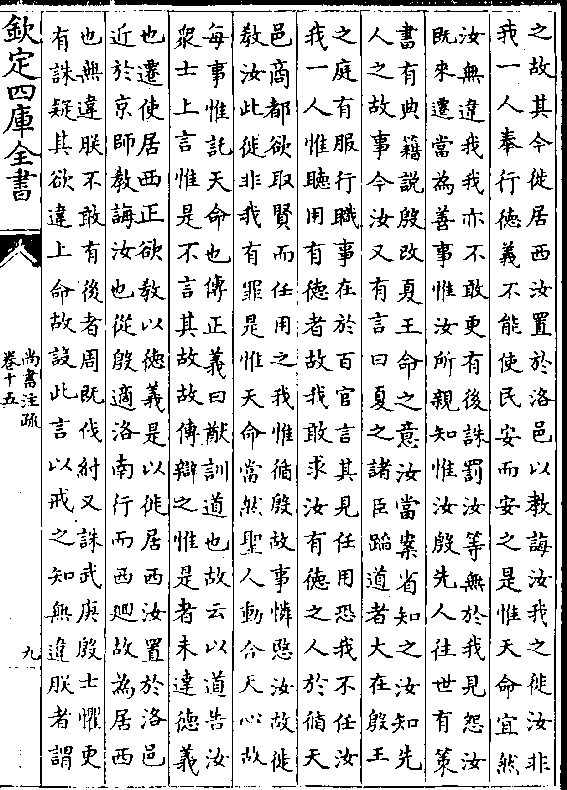 之故其今徙居西汝置於洛邑以教誨汝我之徙汝非
我一人奉行德義不能使民安而安之是惟天命宜然
汝無違我我亦不敢更有後誅罰汝等無於我見怨汝
既來遷當為善事惟汝所親知惟汝殷先人往世有策
書有典籍說殷改夏王命之意汝當案省知之汝知先
人之故事今汝又有言曰夏之諸臣蹈道者大在殷王
之庭有服行職事在於百官言其見任用恐我不任汝
我一人惟聽用有德者故我敢求汝有德之人於彼天
邑商都欲取賢而任用之我惟循殷故事憐愍汝故徙
教汝此徙非我有罪是惟天命當然聖人動合天心故
每事惟託天命也傳正義曰猷訓道也故云以道告汝
衆士上言惟是不言其故故傳辯之惟是者未達德義
也遷使居西正欲教以德義是以徙居西汝置於洛邑
近於京師教誨汝也從殷適洛南行而西迴故為居西
也無違朕不敢有後者周既伐紂又誅武庚殷士懼更
有誅疑其欲違上命故設此言以戒之知無違朕者謂
欽定四庫全書
尚書注疏
卷十五
九